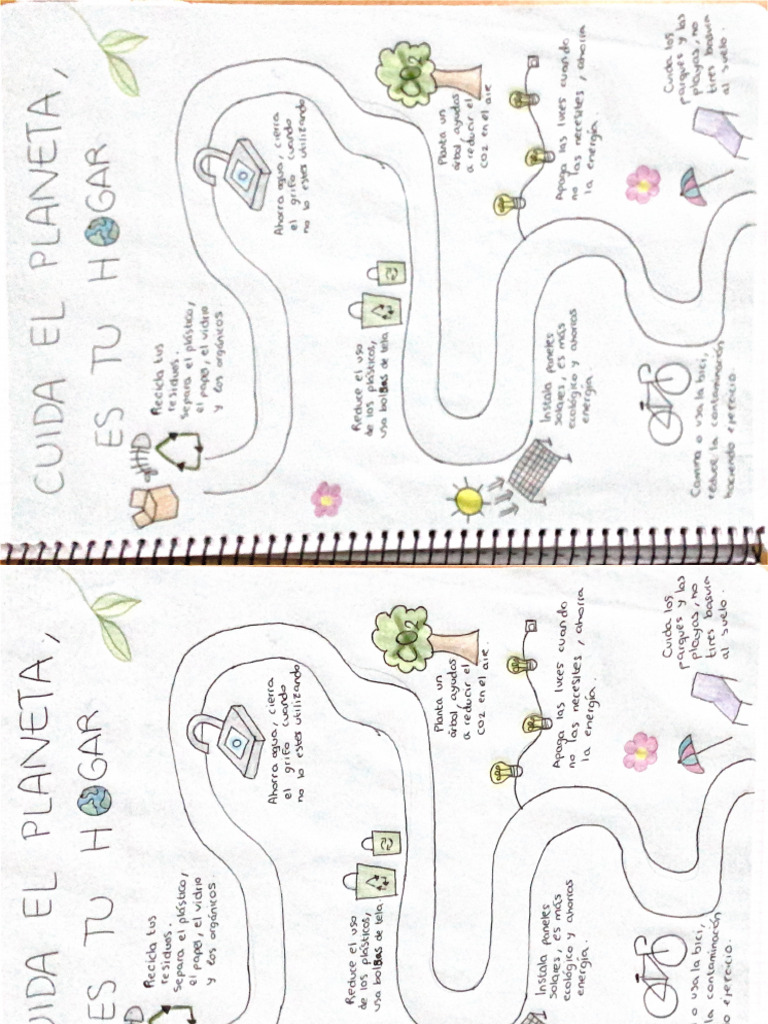 CUIDA EL PLANETA,
ES TU HOGAR
Recicla tus
residuos.
Separa el plástico,
el papel, el vidrio
y los orgánicos.
Ahorra agua, cierra
el grifo cuando
no lo estes utilizando
Reduce el uso
de los plásticos,
usa bolsas de tela
O2
Planta un
árbol, ayudas
a reducir el
CO2 en el aire
Instala paneles
solares, es más
ecológico y ahorras
energía.
Apaga las luces cuando
no las necesites, ahorra
la energía.
Camina o usa la bici,
reduce la contaminación
haciendo ejercicio.
Cuida los
parques y las
playas, no
tires basura
al suelo.
UIDA EL PLANETA,
ES TU HOGAR
Recicla tus
residuos.
Separa el plástico,
el papel, el vidrio
y los orgánicos.
Ahorra agua, cierra
el grifo cuando
no lo estes utilizando
Reduce el uso
de los plásticos,
usa bolsas de tela
O2
Planta un
árbol, ayudas
a reducir el
CO2 en el aire.
Instala paneles
solares, es más
ecológico y ahorras
energía.
Apaga las luces cuando
no las necesites, ahorra
la energía.
o usa la bici,
la contaminación
o ejercicio.
Cuida los
parques y las
playas, no
tires basura
al suelo.